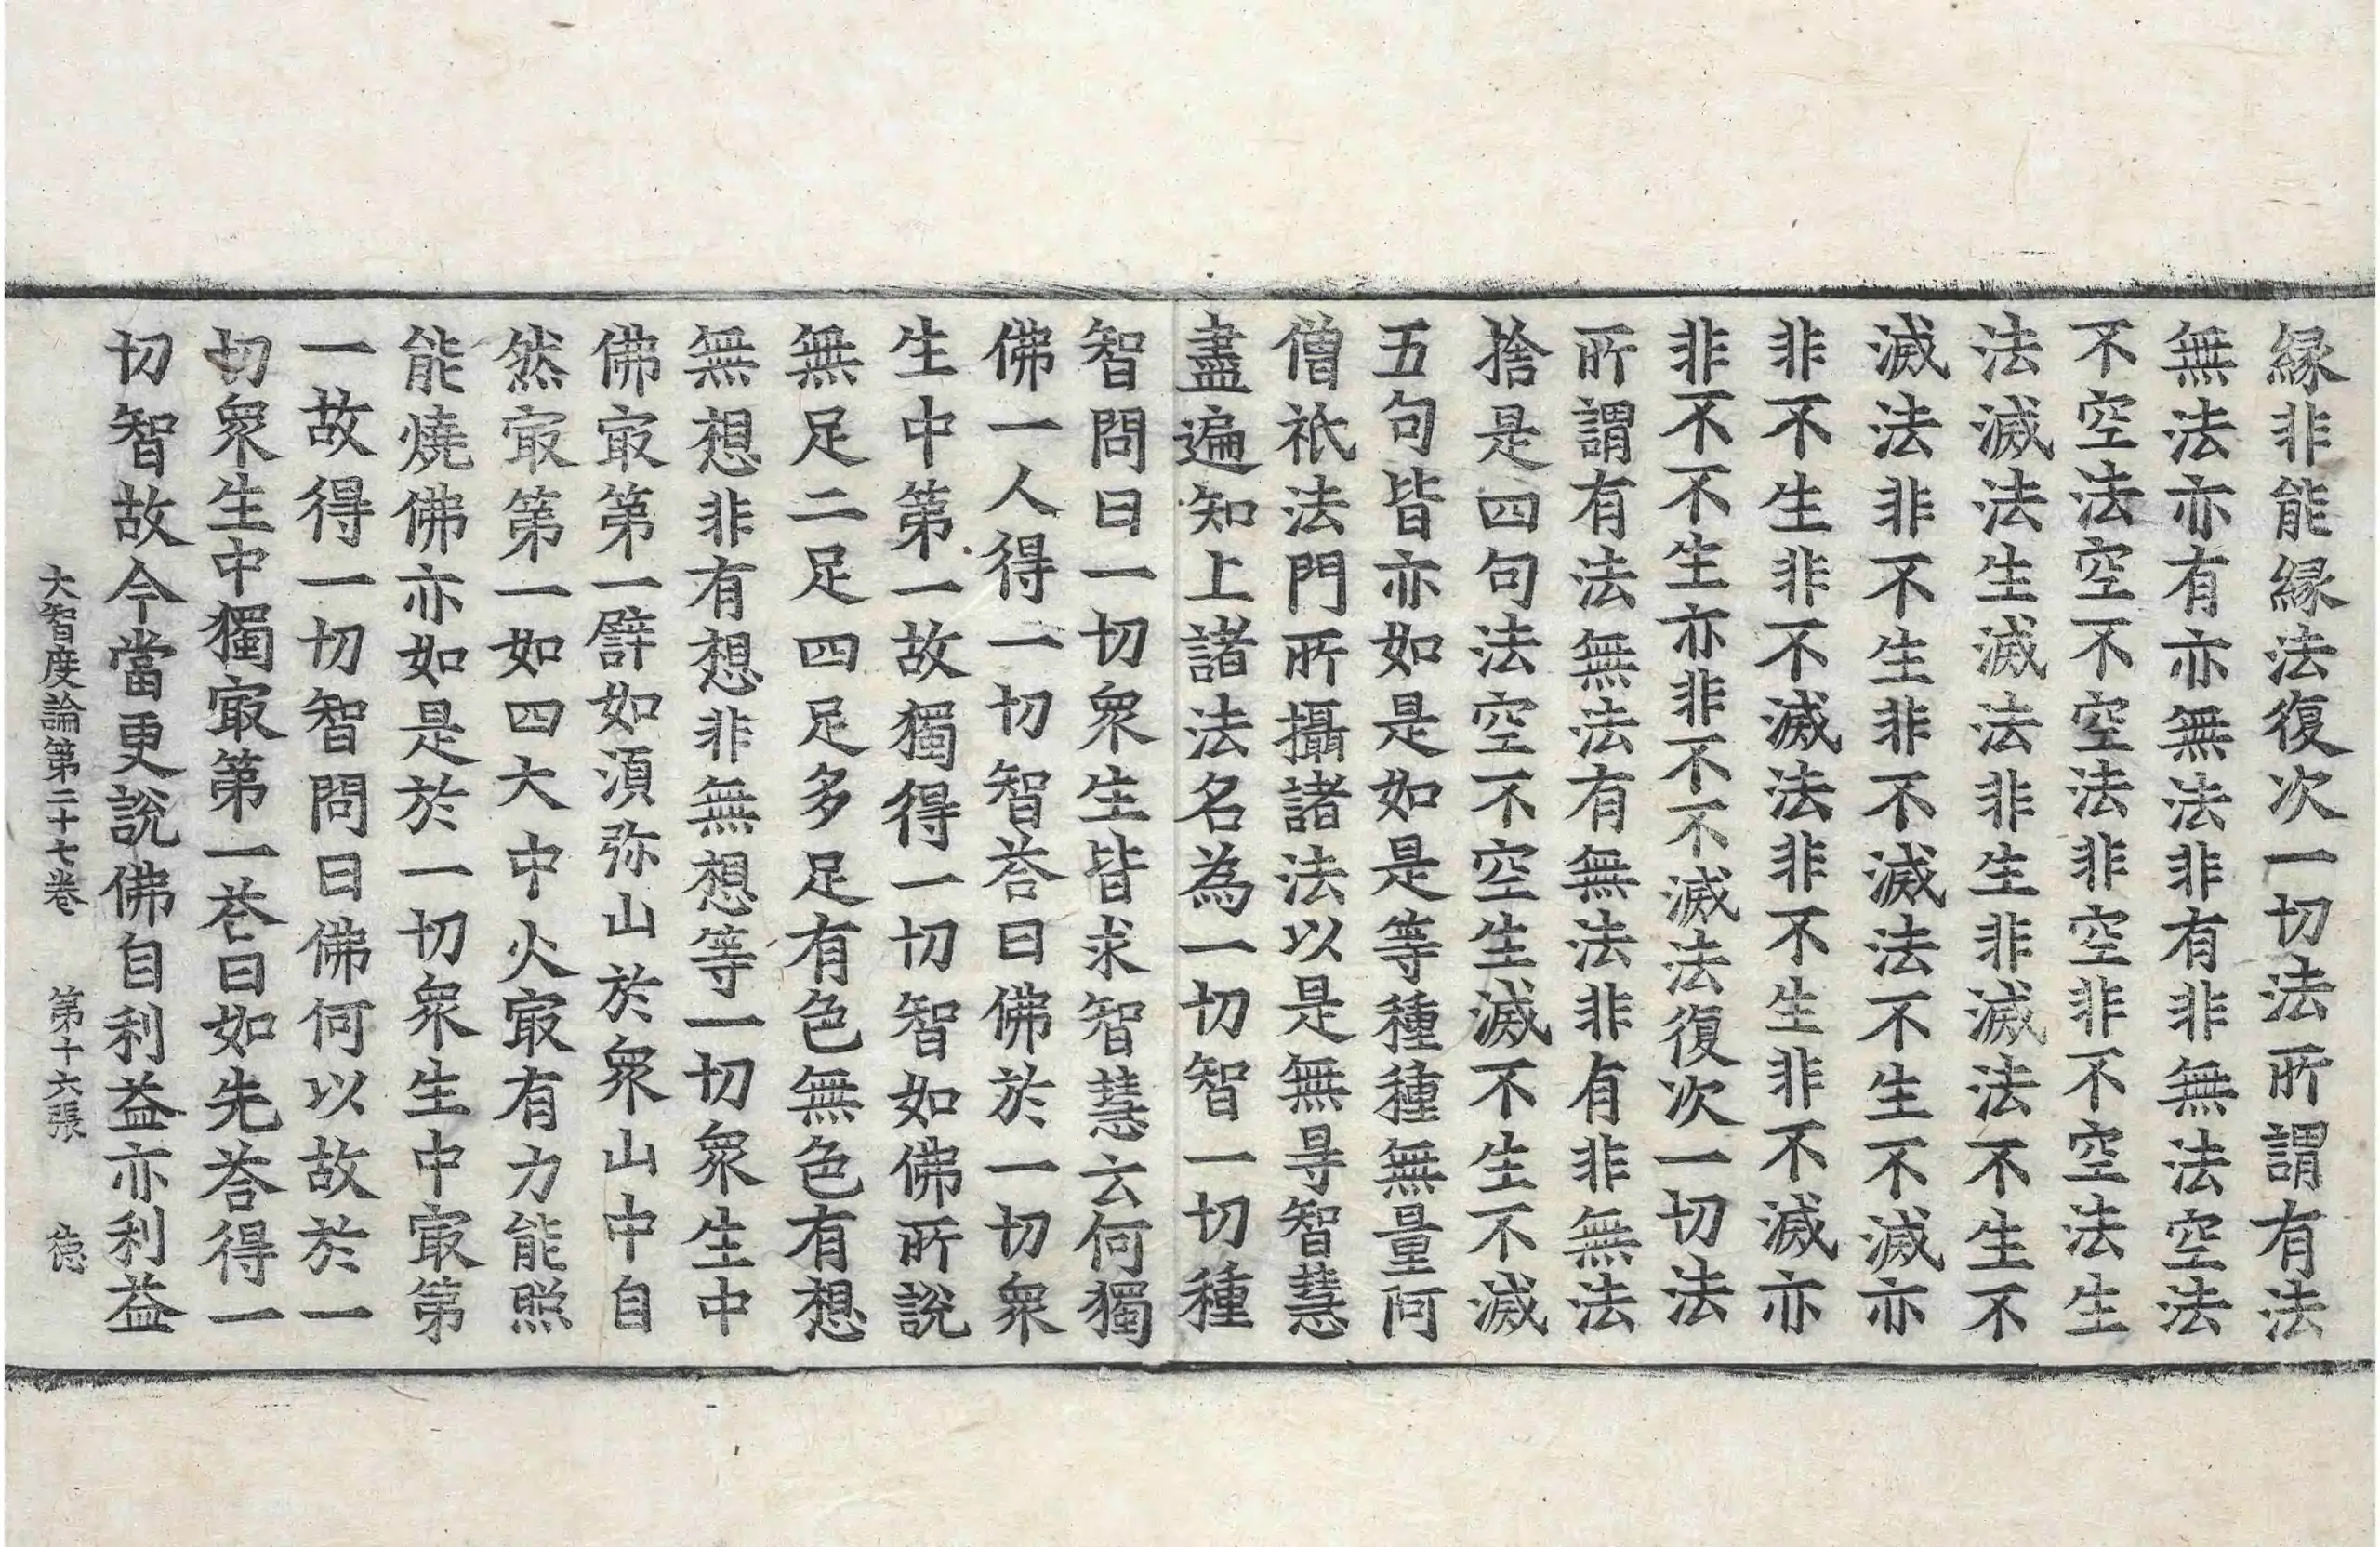 縁非能縁法復次一切法所謂有法
無法亦有亦無法非有非無法空法
不空法空不空法非空非不空法生
法滅法生滅法非生非滅法不生不
滅法非不生非不滅法不生不滅亦
非不生非不滅法非不生非不滅亦
非不不生亦非不不滅法復次一切法
所謂有法無法有無法非有非無法
捨是四句法空不空生滅不生不滅
五句皆亦如是如是等種種無量阿
僧祇法門所攝諸法以是無㝵智慧
盡遍知上諸法名為一切智一切種
智問曰一切衆生皆求智慧云何獨
佛一人得一切智荅曰佛於一切衆
生中第一故獨得一切智如佛所說
無足二足四足多足有色無色有想
無想非有想非無想等一切衆生中
佛㝡第一譬如湏弥山於衆山中自
然㝡第一如四大中火㝡有力能照
能燒佛亦如是於一切衆生中㝡第
一故得一切智問曰佛何以故於一
切衆生中獨㝡第一荅曰如先荅得一
切智故今當更說佛自利益亦利益
大智度論第二十七卷 第十六張 德